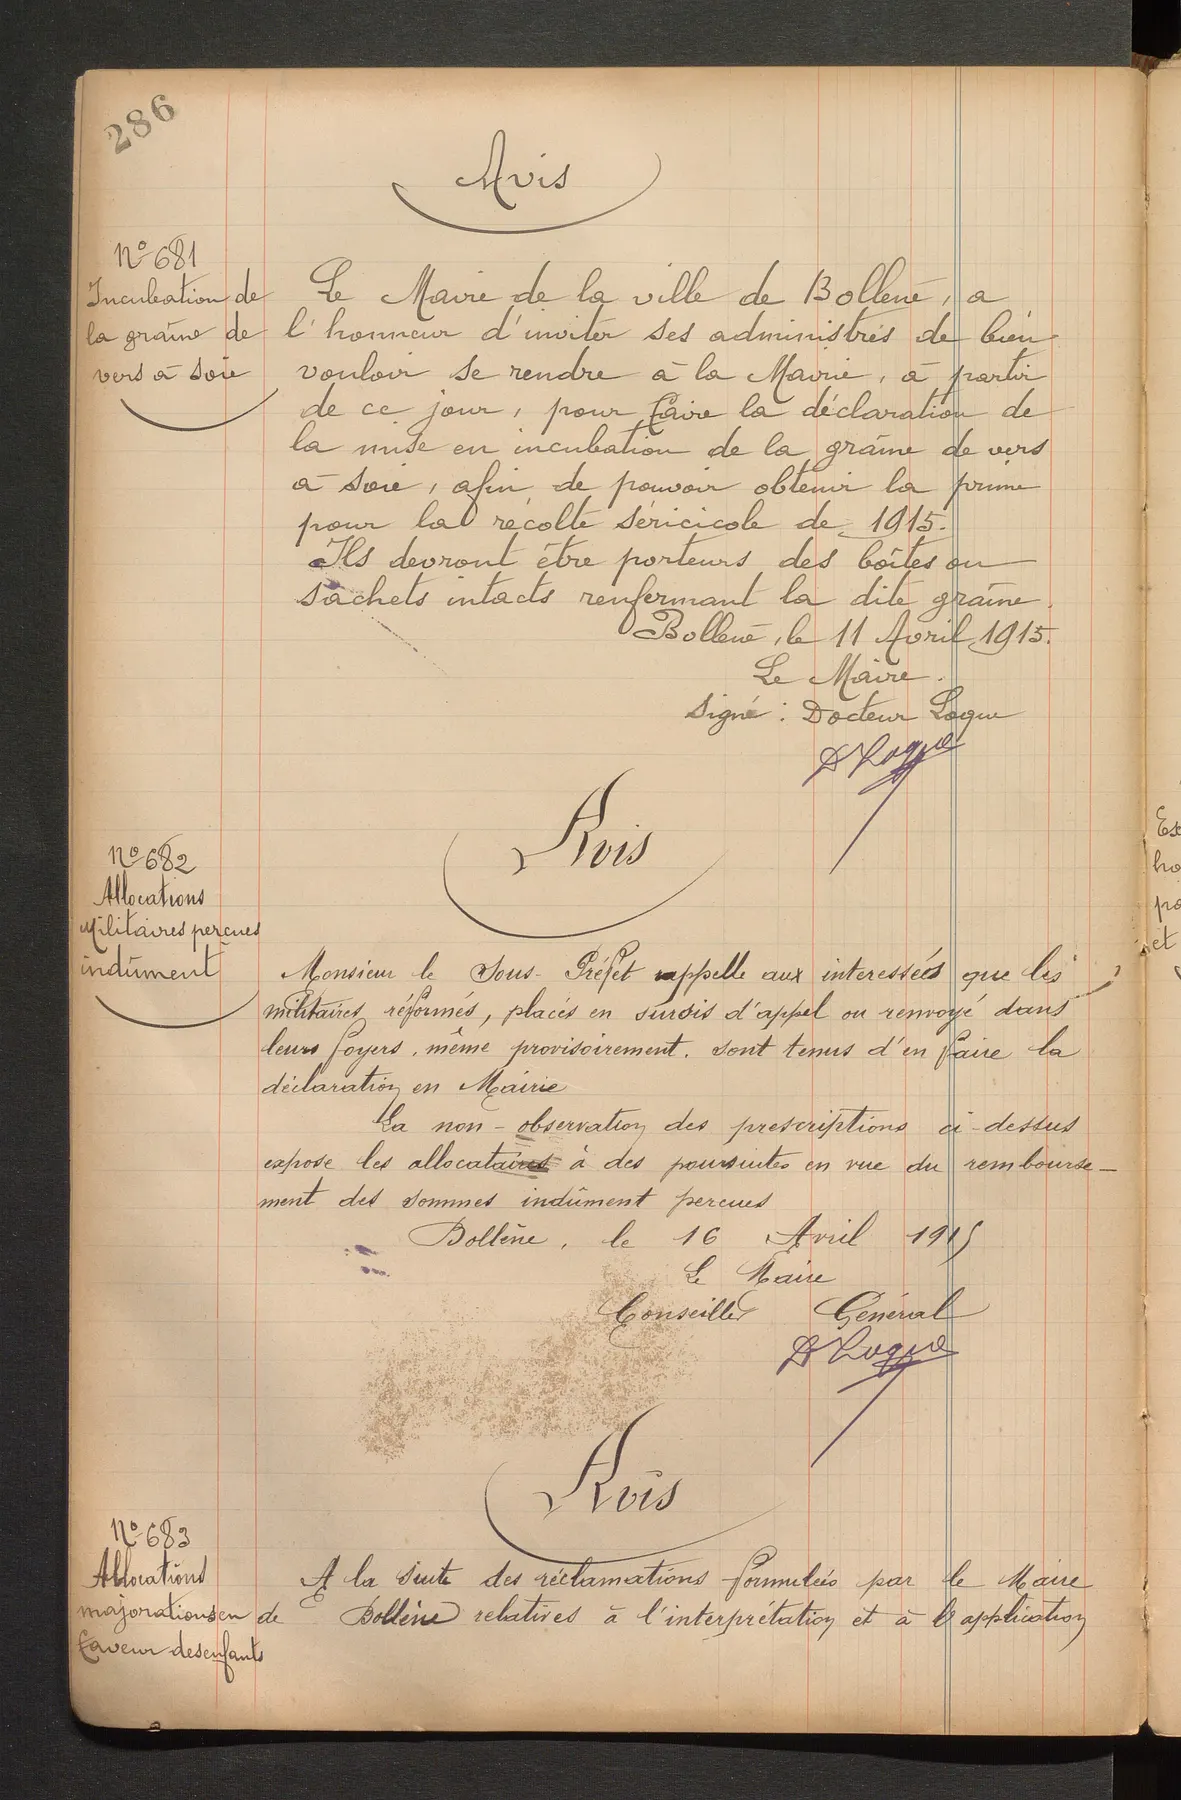 286
Avis
N° 681
Incubation de
la graine de
vers à soie
Le Maire de la ville de Bollène, a
l'honneur d'inviter ses administrés de bien
vouloir se rendre à la Mairie, à partir
de ce jour, pour faire la déclaration de
la mise en incubation de la graine de vers
à soie, afin de pouvoir obtenir la prime
pour la récolte séricicole de 1915.
Ils devront être porteurs des boîtes ou
sachets intacts renfermant la dite graine.
Bollène, le 11 Avril 1915.
Le Maire.
Signé : Docteur Logue
D Logue
Avis
N° 682
Allocations
Militaires perçues
indûment
Monsieur le Sous-Préfet rappelle aux interessées que les
militaires réformés, placés en sursis d'appel ou renvoyé dans
leurs foyers, même provisoirement, sont tenus d'en faire la
déclaration en Mairie
La non-observation des prescriptions ci-dessus
expose les allocataires à des poursuites en vue du rembourse-
ment des sommes indûment percues
Bollène, le 16 Avril 1915
Le Maire
Conseiller Général
D Logue
Avis
N° 683
Allocations
majorations en
faveur des enfants
A la suite des réclamations formulées par le Maire
de Bollène relatives à l'interprétation et à l'application